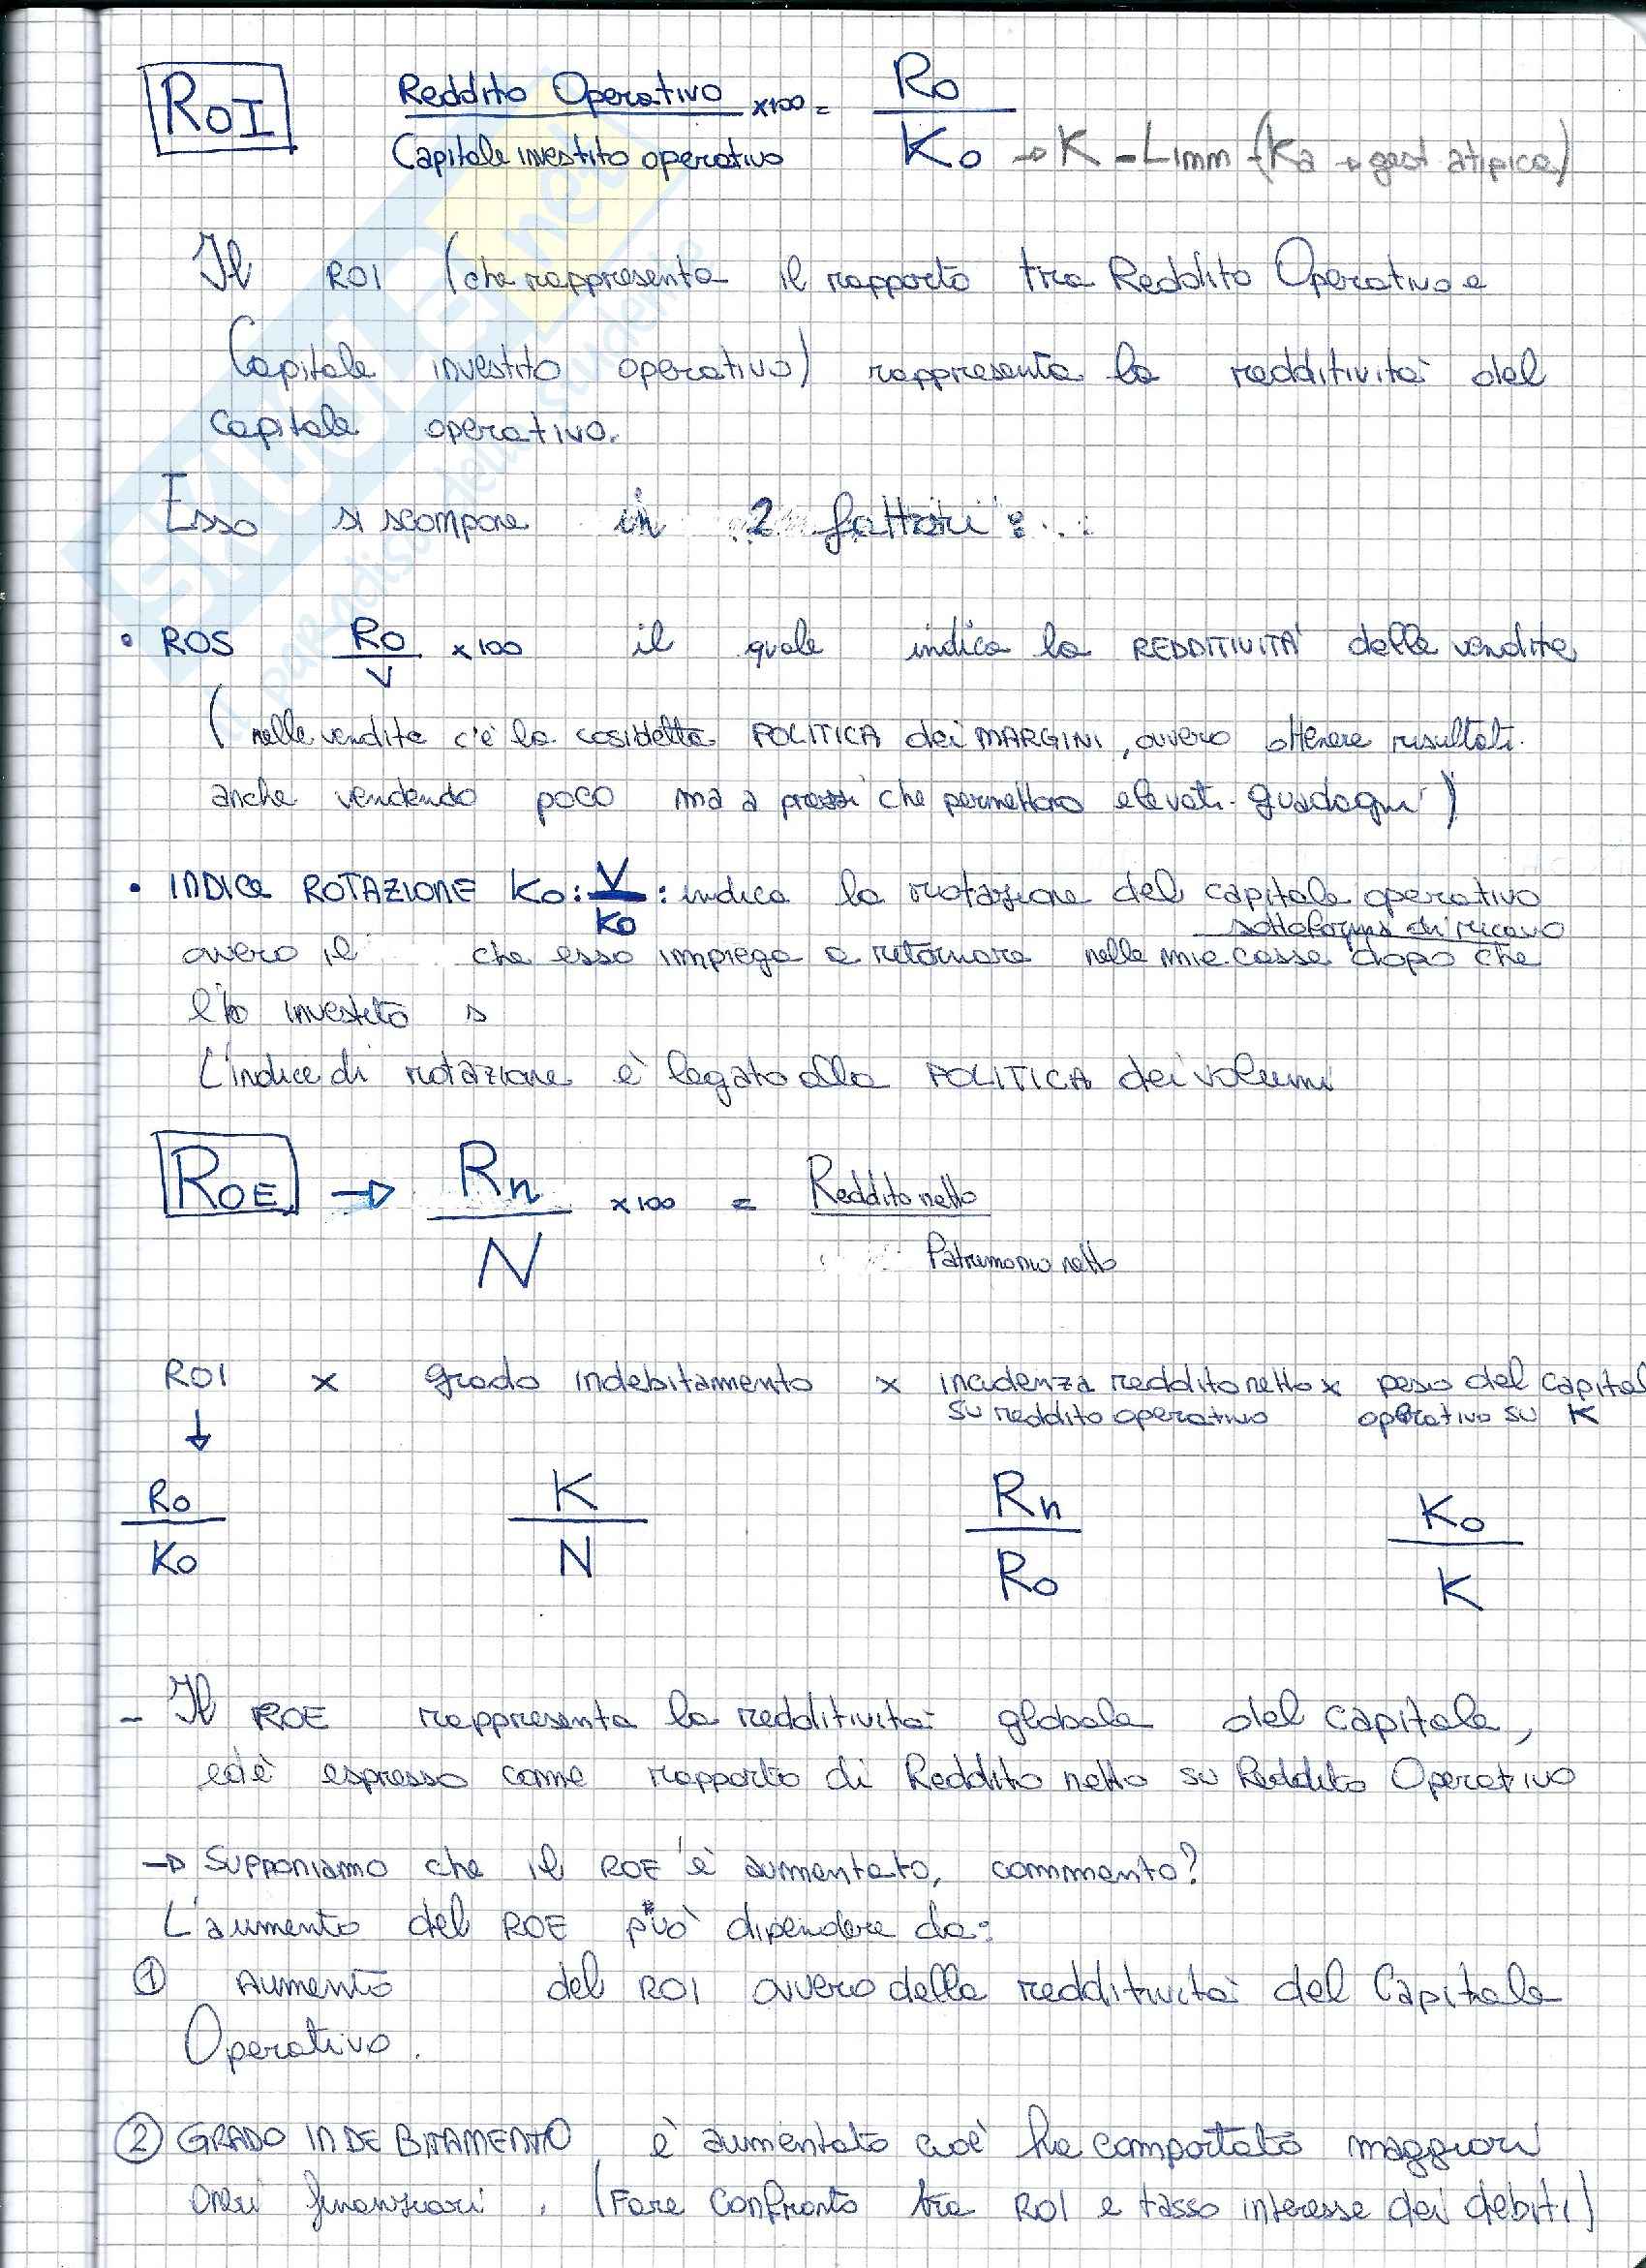 ROI Reddito Operativo x100 = Ro
Capitale investito operativo Ko → K - Limm - (Ka → gest atipica)
Il ROI (che rappresenta il rapporto tra Reddito Operativo e
Capitale investito operativo) rappresenta la redditività del
capitale operativo.
Esso si scompone in 2 fattori:
• ROS Ro x100 il quale indica la REDDITIVITA' delle vendite
V
(nelle vendite c'è la cosidetta POLITICA dei MARGINI, ovvero ottenere risultati
anche vendendo poco ma a prezzi che permettono elevati guadagni)
• INDICE ROTAZIONE Ko: V : indica la rotazione del capitale operativo
Ko
sottoforma di ricavo
ovvero il che esso impiega a ritornare nelle mie casse dopo che
l'ho investito
L'indice di rotazione è legato alla POLITICA dei volumi
ROE → Rn x100 = Reddito netto
N Patrimonio netto
ROI x grado indebitamento x incidenza reddito netto x peso del capital
↓ su reddito operativo operativo su K
Ro K Rn Ko
Ko N Ro K
- Il ROE rappresenta la redditività globale del capitale,
ed è espresso come rapporto di Reddito netto su Reddito Operativo
→ Supponiamo che il ROE è aumentato, commento?
L'aumento del ROE può dipendere da:
① Aumento del ROI ovvero della redditività del Capitale
Operativo.
② GRADO INDEBITAMENTO è aumentato cioè ha comportato maggiori
oneri finanziari. (Fare confronto tra ROI e tasso interesse dei debiti)
SKUOLA.net
il paradiso dello studente